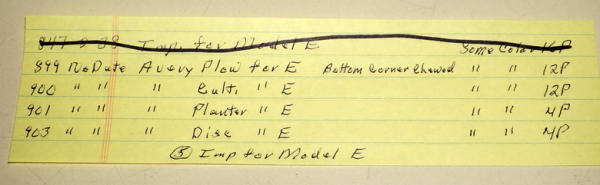 847-2-38 Imp. for Model E Some Color 16P
899 No Date Avery Plow for E Bottom Corner Chewed " " 12P
900 " " " Culti " E " " 12P
901 " " " Planter " E " " 4P
903 " " " Disc " E " " 4P
⑤ Imp for Model E